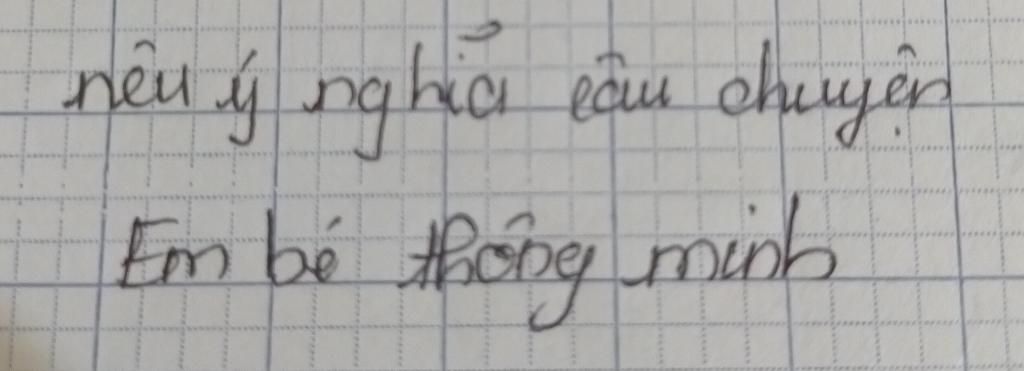 nêu ý nghĩa câu chuyện
Em bé thông minh